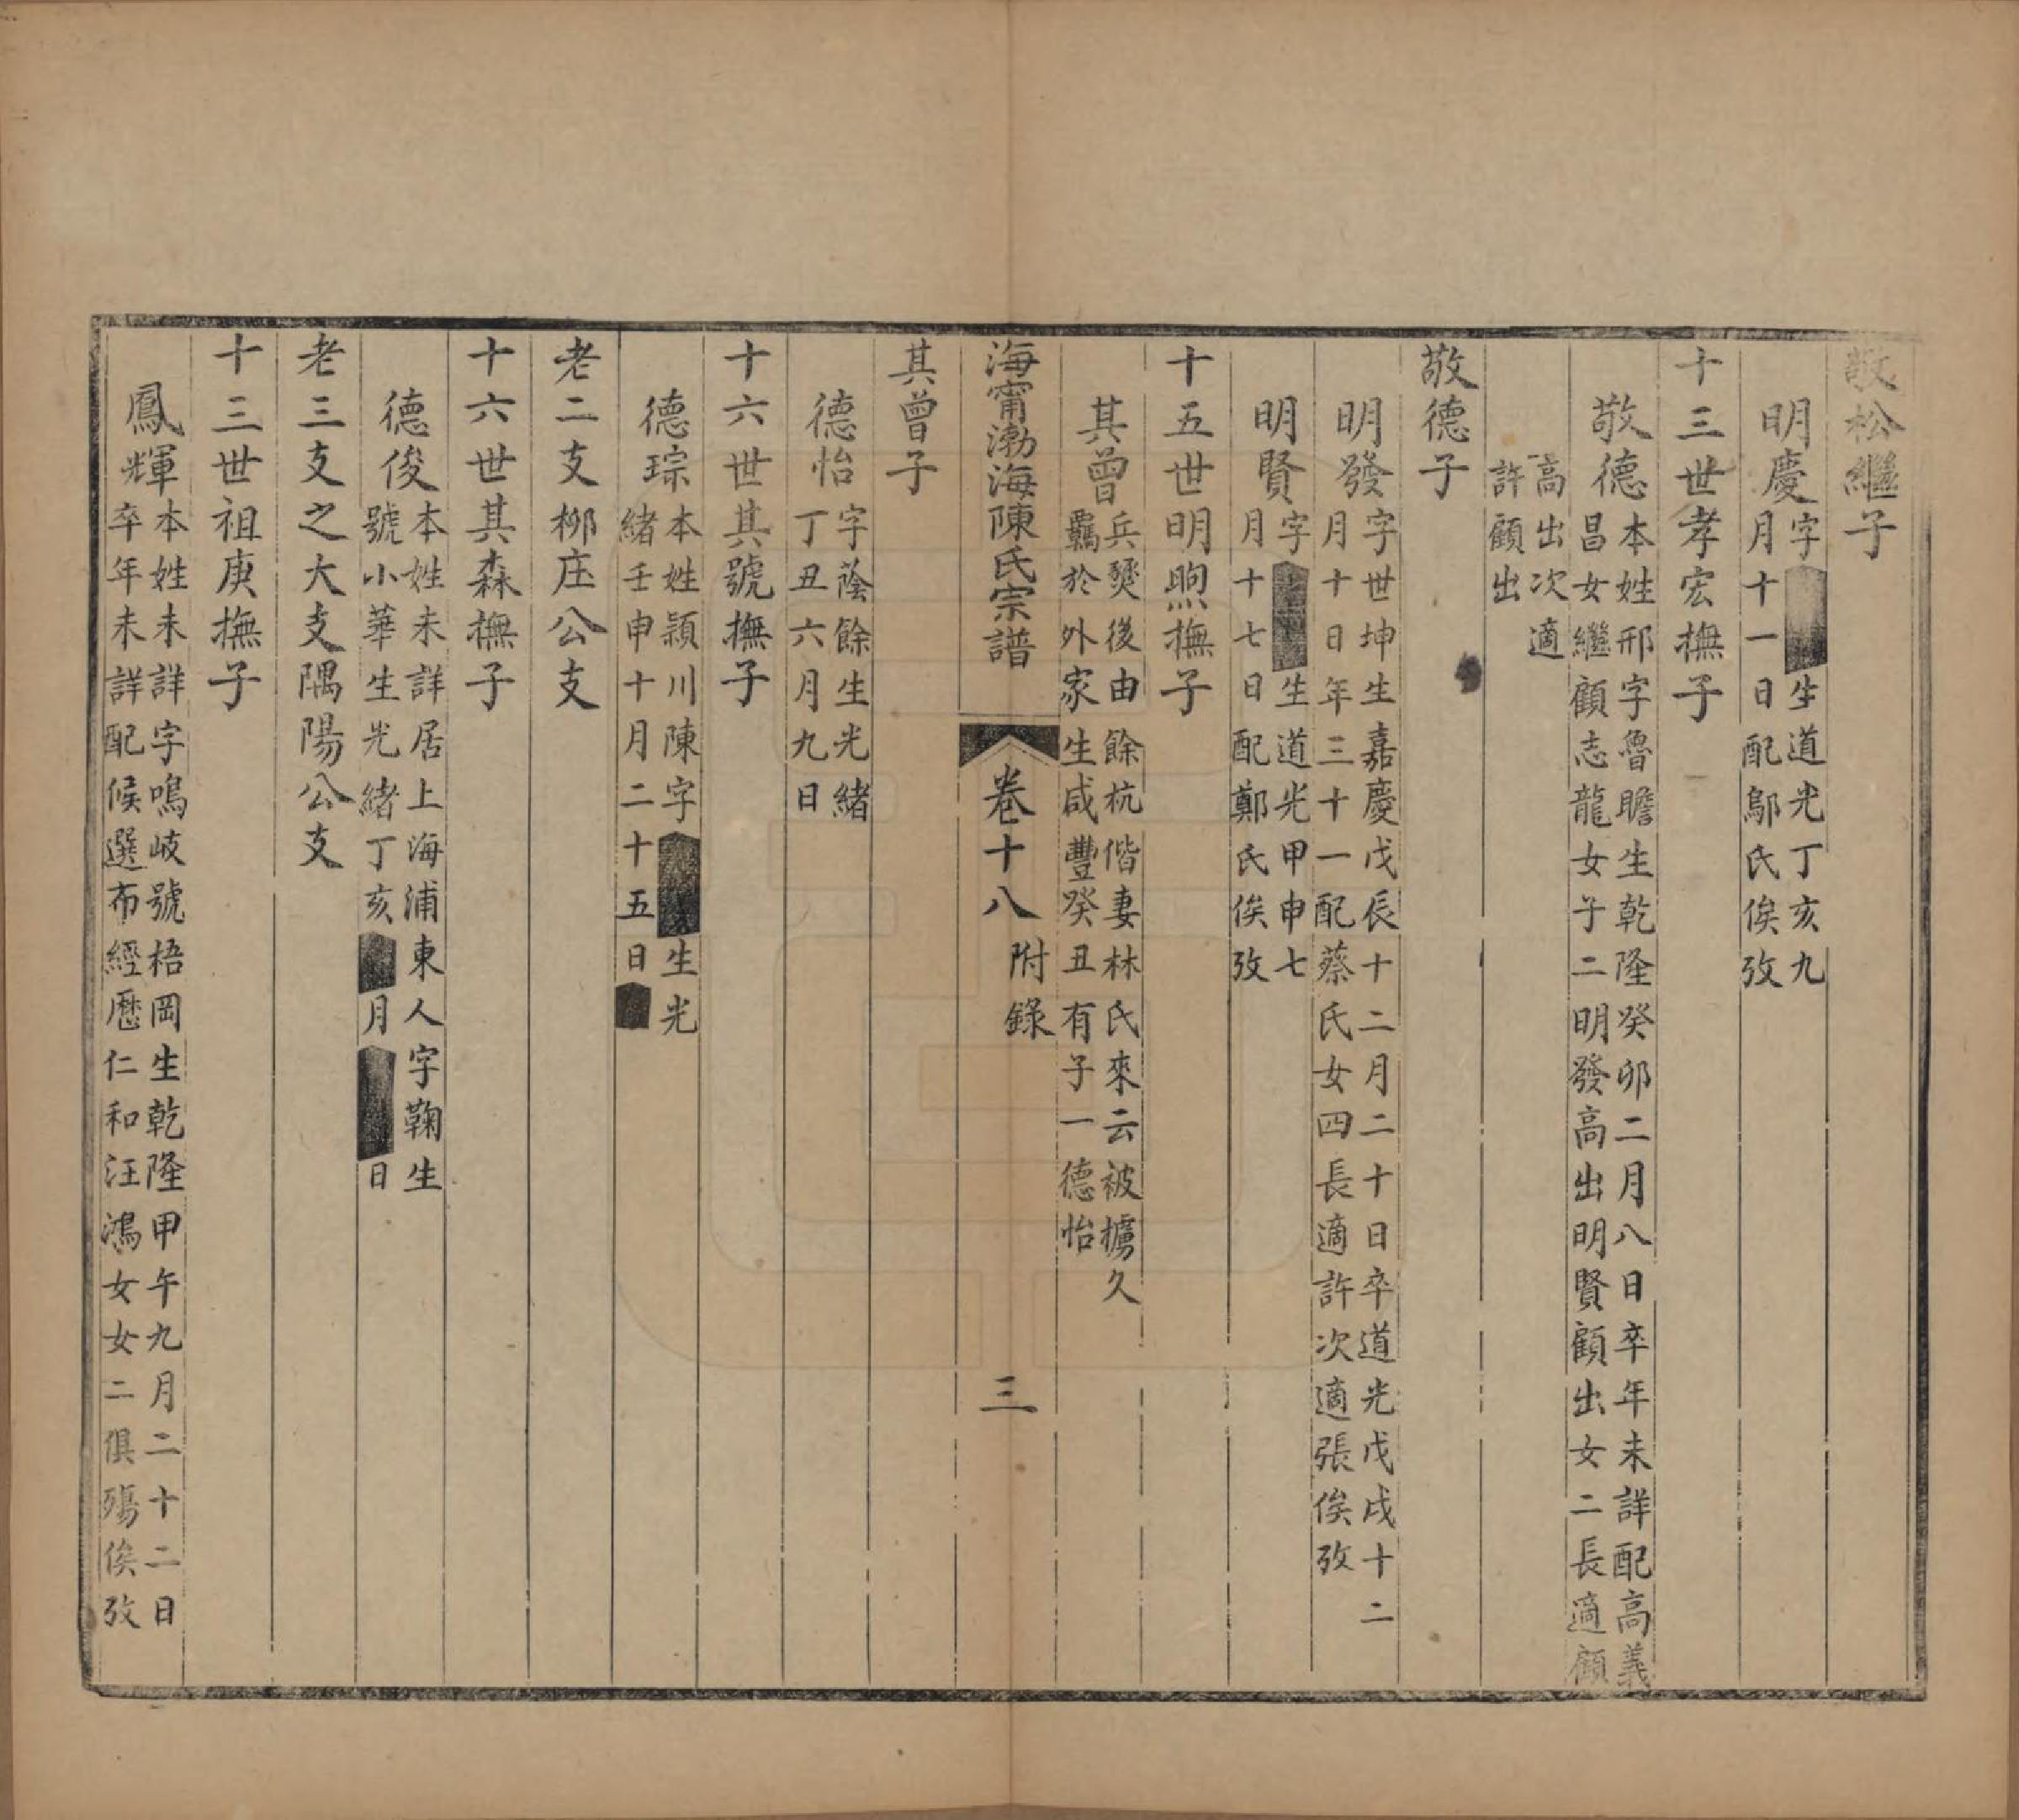 敬松繼子
明慶字生道光丁亥九
月十一日配鄔氏俟攷
十三世孝宏撫子
敬德本姓邢字魯瞻生乾隆癸卯二月八日卒年未詳配高義
昌女繼顧志龍女子二明發高出明賢顧出女二長適顧
高出次適
許顧出
敬德子
明發字世坤生嘉慶戊辰十二月二十日卒道光戊戌十二
月十日年三十一配蔡氏女四長適許次適張俟攷
明賢字生道光甲申七
月十七日配鄭氏俟攷
十五世明煦撫子
其曾兵燹後由餘杭偕妻林氏來云被擄久
羈於外家生咸豐癸丑有子一德怡
海甯渤海陳氏宗譜
卷十八
附錄
三
其曾子
德怡字蔭餘生光緒
丁丑六月九日
十六世其號撫子
德琮本姓潁川陳字生光
緒壬申十月二十五日
老二支柳庄公支
十六世其森撫子
德俊本姓未詳居上海浦東人字鞠生
號小華生光緒丁亥月日
老三支之大支隅陽公支
十三世祖庚撫子
鳳輝本姓未詳字鳴岐號梧岡生乾隆甲午九月二十二日
卒年未詳配候選布經歷仁和汪鴻女女二俱殤俟攷